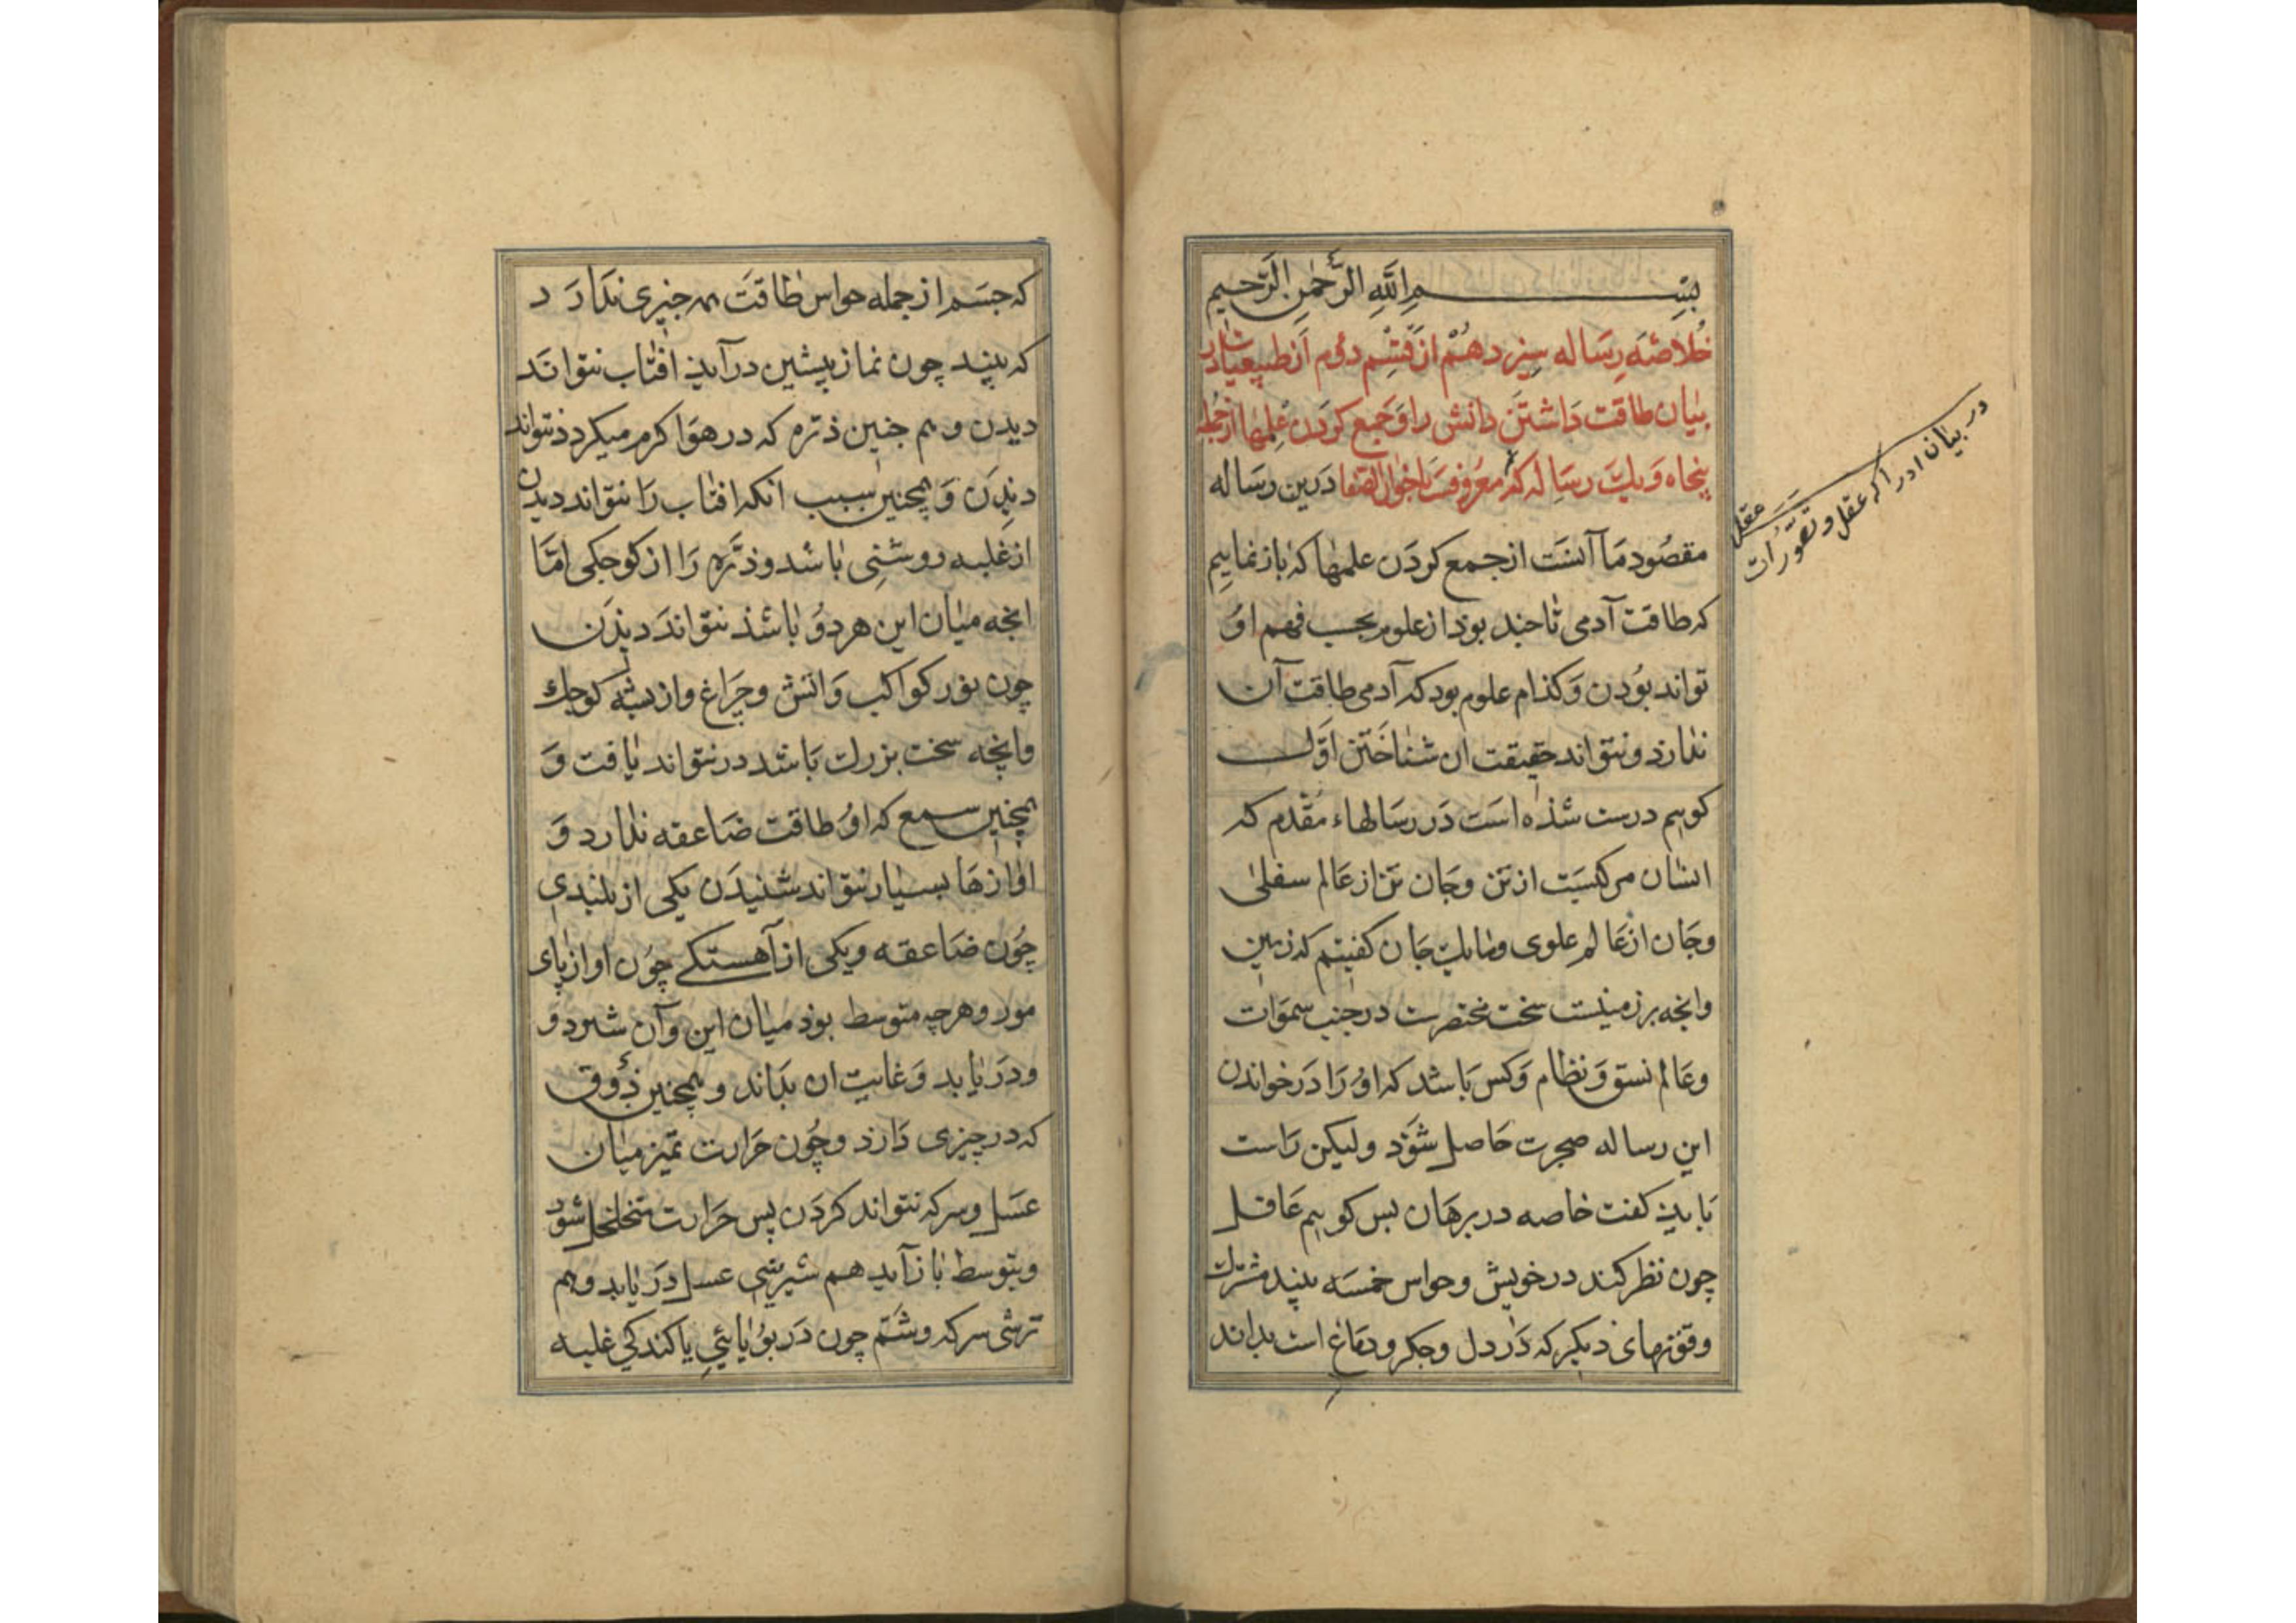 بسم الله الرحمن الرحیم
خلاصه رساله سیزدهم از قسم دوم از طبیعیات در
بیان طاقت داشتن دانش را و جمع کردن علمها از جمله
پنجاه و یک رساله که معروفست باخوان الصفا درین رساله
مقصود ما آنست از جمع کردن علمها که باز نماییم
که طاقت آدمی تا چند بوذ از علوم بحسب فهم او
تواند بودن و کذام علوم بود که آدمی طاقت آن
ندارد و نتواند حقیقت ان شناختن اول
کوییم درست شذه است در رسالهاء مقدم که
انسان مرکبست از تن و جان تن از عالم سفلی
و جان از عالم علوی و مابیک جا ن کفتیم که زمین
وانچه بر زمینست سخت مختصرست در جنب سموات
و عالم نسق و نظام و کس باشد که او را در خواندن
این رساله ضجرت حاصل شوذ ولیکن راست
بایذ کفت خاصه در برهان بس کوییم عاقل
چون نظر کند در خویش و حواس خمسه بیند مشترک
و قوتهای دیکر که در دل و جکر و دماغ است بداند
در بیان ادراک عقل و تصورات
عقل
که جسم از جمله حواس طاقت همه چیزی ندارد
که بیند چون نماز پیشین درآید افتاب نتواند
دیدن و هم چنین ذره که در هوا کرم میکرد ذ نتواند
دیدن و همچنین سبب انکه افتاب را نتواند دیدن
از غلبه روشنی باشد و ذره را از کوچکی اما
انچه میان این هر دو باشذ نتواند دیذن
چون نور کواکب و اتش و چراغ و از پشه کوچک
وانچه سخت بزرک باشد درنتواند یافت و
همچنین سمع که او طاقت صاعقه ندارد و
اوازها بسیار نتواند شنیدن یکی از بلندی
چون صاعقه و یکی از آهستکی چون اواز پای
مور و هرچه متوسط بوذ میان این و آن شنود و
و دریابد و غایت ان بداند و همچنین ذوق
که در چیزی دارد و چون حرارت تمیز میان
عسل و سرکه نتواند کردن پس حرارت متخلخل شود
و بتوسط بازآید هم شیرینی عسل دریابد و هم
ترشی سرکه و شم چون در بویایئی یا کندکی غلبه